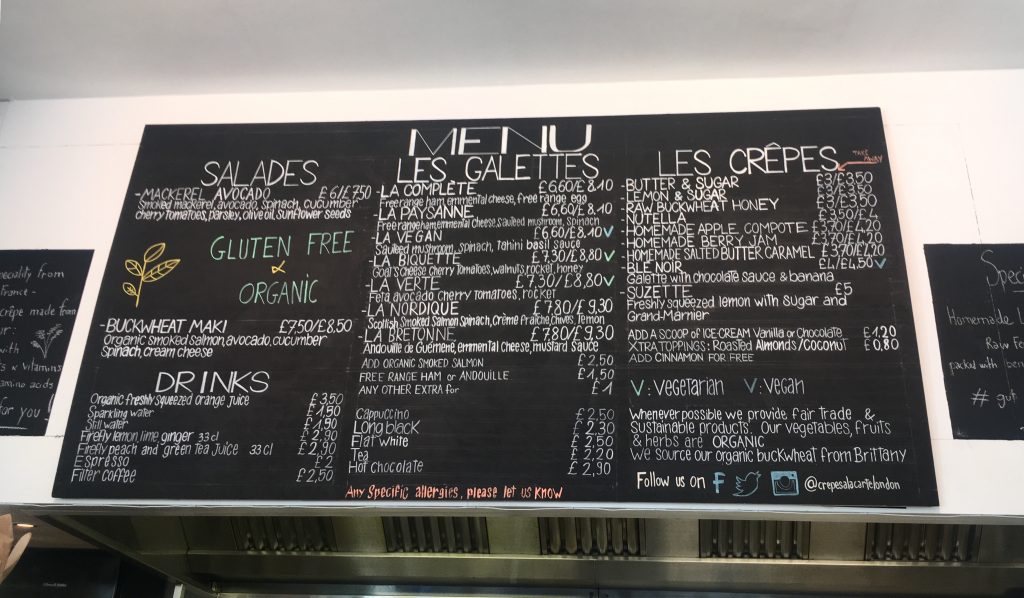 MENU
SALADES
-MACKEREL AVOCADO £6/£7,50
Smoked mackerel, avocado, spinach, cucumber
cherry tomatoes, parsley, olive oil, sunflower seeds
GLUTEN FREE
&
ORGANIC
-BUCKWHEAT MAKI £7,50/£8,50
Organic smoked salmon, avocado, cucumber
Spinach, cream cheese
DRINKS
Organic freshly squeezed orange juice £3,50
Sparkling water £1,90
Still water £1,90
Firefly lemon, lime ginger 33cl £2,90
Firefly peach and green tea Juice 33cl £2,90
Espresso £2
Filter coffee £2,50
LES GALETTES
-LA COMPLÈTE £6,60/£8,10
Free range ham, emmental cheese, free range egg
-LA PAYSANNE £6,60/£8,10
Free range ham, emmental cheese, sauteed mushroom, Spinach
-LA VEGAN £6,60/£8,10 V
Sauteed mushroom, spinach, tahini basil sauce
-LA BIQUETTE £7,30/£8,80 V
Goat's cheese cherry tomatoes, walnuts, rocket, honey
-LA VERTE £7,30/£8,80 V
Feta avocado cherry tomatoes, rocket
-LA NORDIQUE £7,80/£9,30
Scottish Smoked Salmon Spinach, Crème fraîche, chives, lemon
-LA BRETONNE £7,80/£9,30
Andouille de Guémené, emmental cheese, mustard sauce
ADD ORGANIC SMOKED SALMON £2,50
FREE RANGE HAM or ANDOUILLE £1,50
ANY OTHER EXTRA for £1
Cappuccino £2,50
Long black £2,30
Flat white £2,50
Tea £2,20
Hot chocolate £2,90
Any Specific allergies, please let us know
LES CRÊPES
TAKE AWAY
-BUTTER & SUGAR £3/£3,50
-LEMON & SUGAR £3/£3,50
-RAW BUCKWHEAT HONEY £3/£3,50
-NUTELLA £3,50/£4
-HOMEMADE APPLE COMPOTE £3,70/£4,20
-HOMEMADE BERRY JAM £3,70/£4,20
-HOMEMADE SALTED BUTTER CARAMEL £3,70/£4,20
-BLE NOIR £4/£4,50 V
Galette with chocolate sauce & banana
-SUZETTE £5
Freshly squeezed lemon with sugar and
Grand-Marnier
ADD A SCOOP of ICE-CREAM Vanilla or Chocolate £1,20
XTRA TOPPINGS: Roasted Almonds/Coconut £0,80
ADD CINNAMON FOR FREE
V: vegetarian V: vegan
Whenever possible we provide fair trade &
sustainable products. Our vegetables, fruits
& herbs are ORGANIC
We source our organic buckwheat from Brittany
Follow us on f @crepesalacartelondon
speciality from
France -
crêpe made from
with
vitamins
amino acids
for you!
Homemade
packed with
#